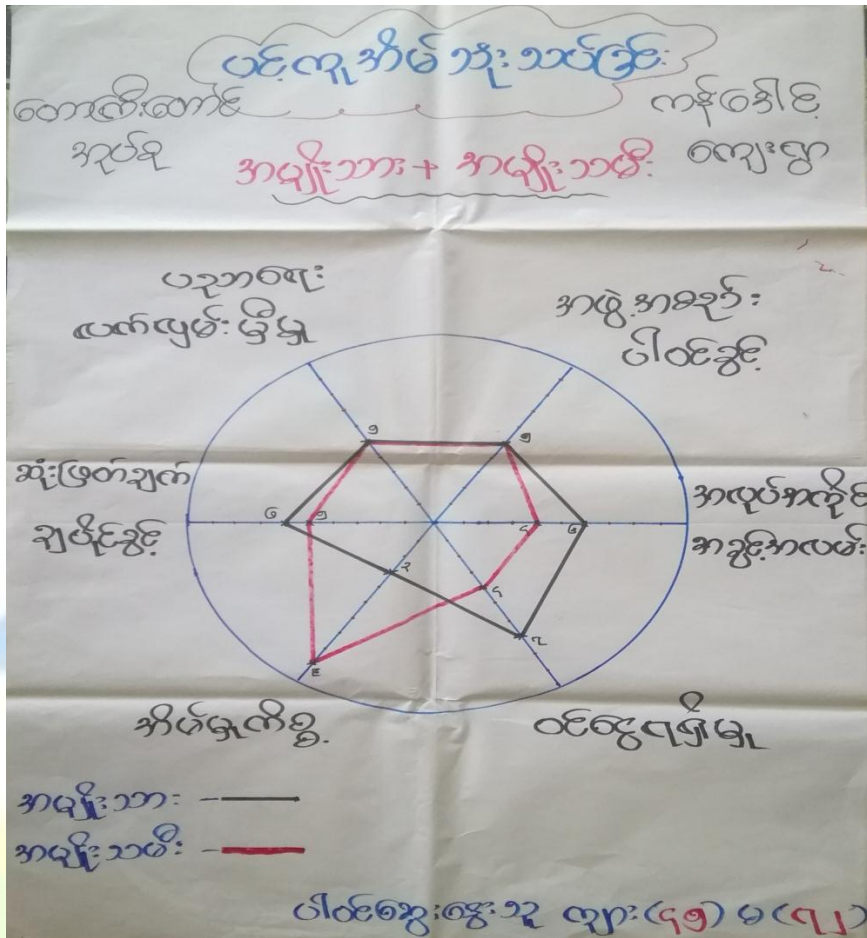 ပင့်ကူအိမ်သုံးသပ်ခြင်း
တောကြီးတောင်
အုပ်စု
ကန်ခေါင့်
ကျေးရွာ
အမျိုးသား + အမျိုးသမီး
ပညာရေး
လက်လှမ်းမှီမှု
အဖွဲ့အစည်း
ပါဝင်ခွင့်
ဆုံးဖြတ်ချက်
ချပိုင်ခွင့်
အလုပ်အကိုင်
အခွင့်အလမ်း
၅
၅
၆
၅
၄
၆
၂
၄
၇
၈
အိမ်မှုကိစ္စ
ဝင်ငွေရရှိမှု
အမျိုးသား -
အမျိုးသမီး -
ပါဝင်ဆွေးနွေးသူ ကျား(၄၅) မ(၇၂)